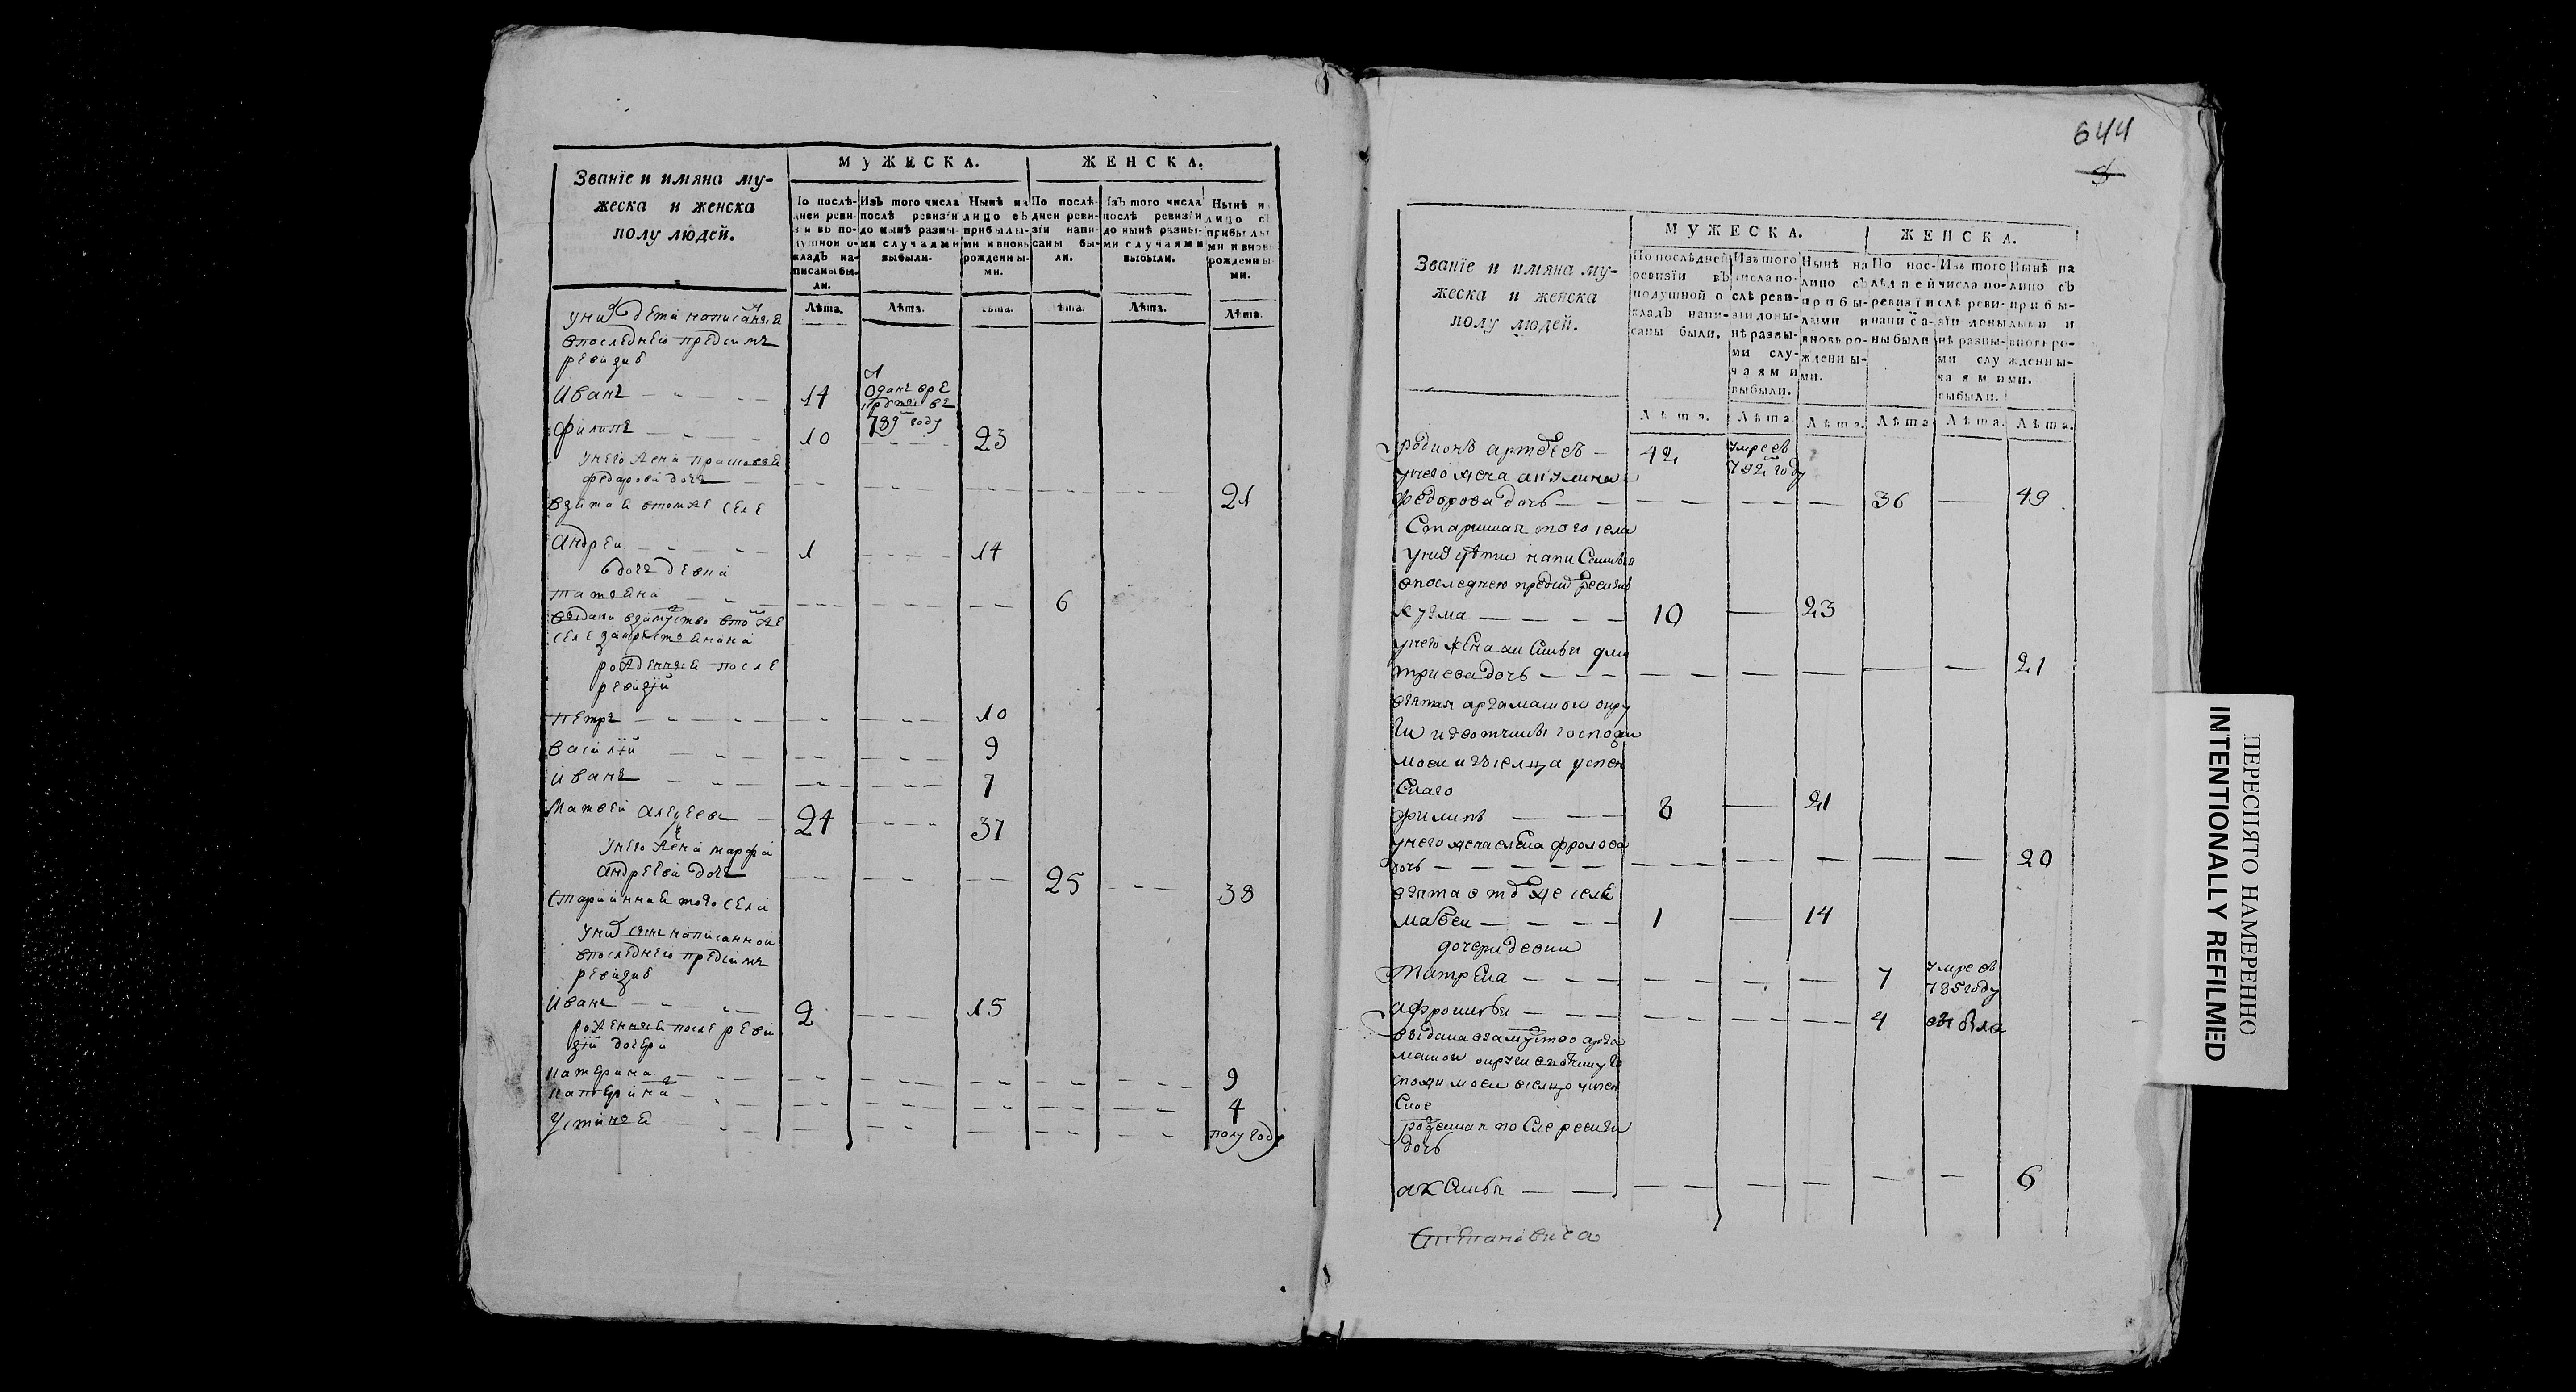 Званїе и имяна му-
жеска и женска
полу людей.
МУЖЕСКА.
ЖЕНСКА.
По послѣ-
дней реви-
зїи въ по-
душной о-
кладъ на-
писаны бы-
ли.
Изъ того числа
послѣ ревизїи
до нынѣ разны-
ми случаями
выбыли.
Нынѣ на
лицо съ
прибылы-
ми и вновь
рожденны-
ми.
По послѣ-
дней реви-
зїи напи-
саны бы-
ли.
Изъ того числа
послѣ ревизїи
до нынѣ разны-
ми случаями
выбыли.
Нынѣ на
лицо съ
прибылы-
ми и вновь
рожденны-
ми.
Лѣта. Лѣта. Лѣта. Лѣта. Лѣта. Лѣта.
у них дети написаныя
в последнею пред сим
ревизие
Иванъ 14 Отданъ в ре
круты въ
789 году
Филипъ 10 23
у него жена Прасковья
Федорова дочь 21
взятая в том же селе
Андреи 1 14
дочь девка
Татьяна 6
выдана в замужство в том же
селе за крестьянина
рожденныя после
ревизїи
Петръ 10
Василїй 9
Иванъ 7
Матвей 24 37
у него жена Марфа
Андреева дочь 25 38
старинная того села
у них сынъ написанной
в последнею пред сим
ревизие
Иванъ 2 15
рожденныя после реви
зїи дочери
Катерина 9
Катерина 4
Устинья полугоду
644
Званїе и имяна му-
жеска и женска
полу людей.
МУЖЕСКА.
ЖЕНСКА.
По послѣдней
ревизїи въ
подушной о
кладъ напи-
саны были.
Изъ того
числа по-
слѣ реви-
зїи доны-
нѣ разны-
ми слу-
чаями
выбыли.
Нынѣ на
лицо съ
прибы-
лыми и
вновь ро-
жденны-
ми.
По пос-
лѣдней
ревизїи
написа-
ны были
Изъ того
числа по-
слѣ реви-
зїи доны-
нѣ разны-
ми слу
чаями
выбыли.
Нынѣ на
лицо съ
прибы-
лыми и
вновь ро-
жденны-
ми.
Лѣта. Лѣта Лѣта. Лѣта Лѣта. Лѣта.
Родионъ 42 умре въ
792 году
у него жена Акулина
Федорова дочь 36 49
Старинная того села
у них дѣти написанныя
в последнею пред сим ревизие
Кузма 10 23
у него жена Аксинья Дми
триева дочь 21
взятая арзамаской окру
ги из вотчины господи
на моего из селца Успен
скаго
Филипъ 8 21
у него жена Елена Фролова
дочь 20
взята в том же селе
Мавеи 1 14
дочери девки
Матрена 7 умре въ
785 году
Афросинья 4 выбыла
выдана в замужство арза
маской округи в вотчину го
сподина моего в селцо Успен
ское
Рожденная после ревизїи
дочь
Аксинья 6
Степановича
ПЕРЕСНЯТО НАМЕРЕННО
INTENTIONALLY REFILMED